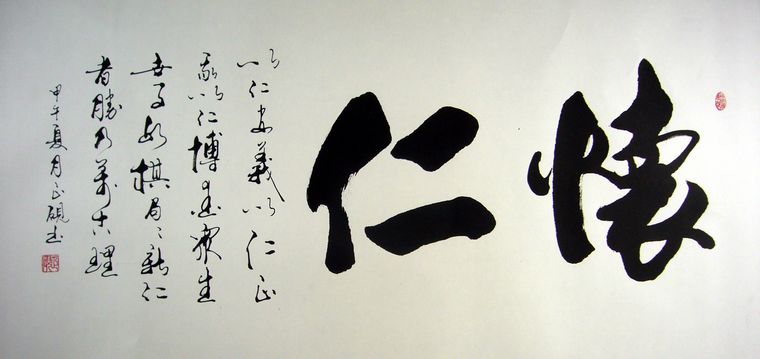 懷仁
以仁安義以仁正
以仁博愛衆生
世事如棋局〻新仁
者勝乃萬古理
甲午夏月正硯書